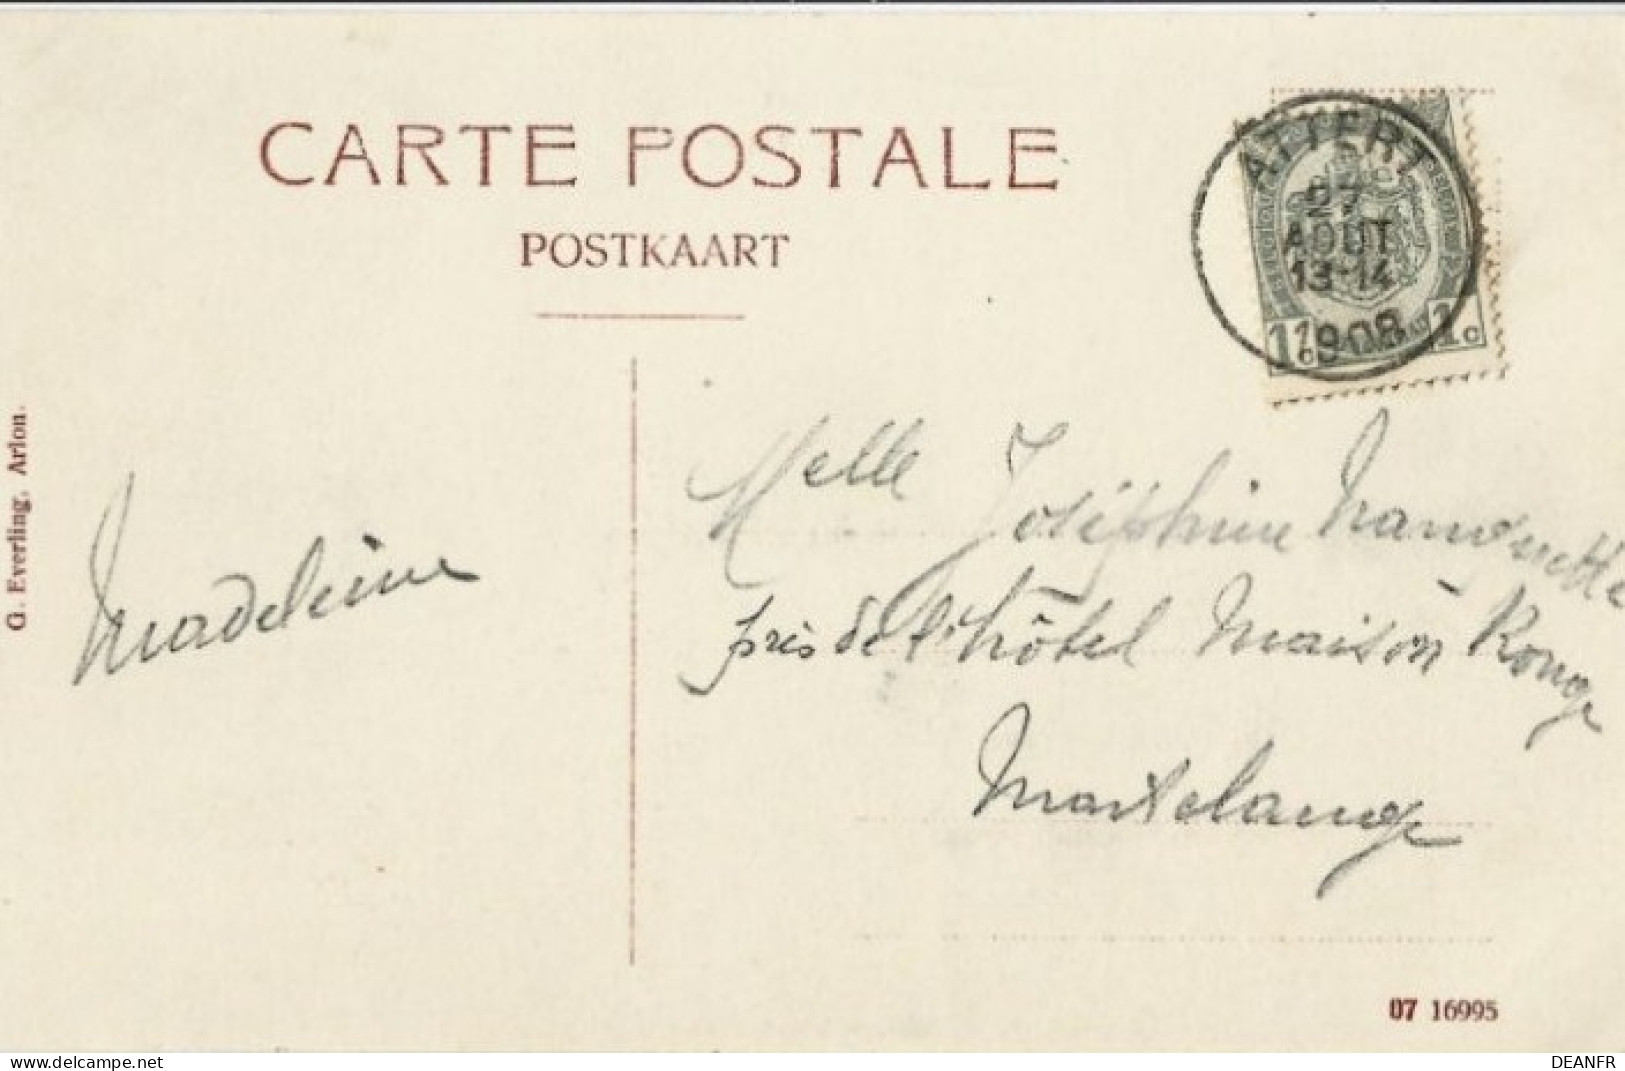 CARTE POSTALE
POSTKAART
ATTERT
AOUT
13-14
1908
1c 1c
G. Everling, Arlon.
Madeleine
Melle Joséphine
près de l'hôtel Maison Rouge
Martelange
07 16995
https://www.delcampe.net
DEANFR